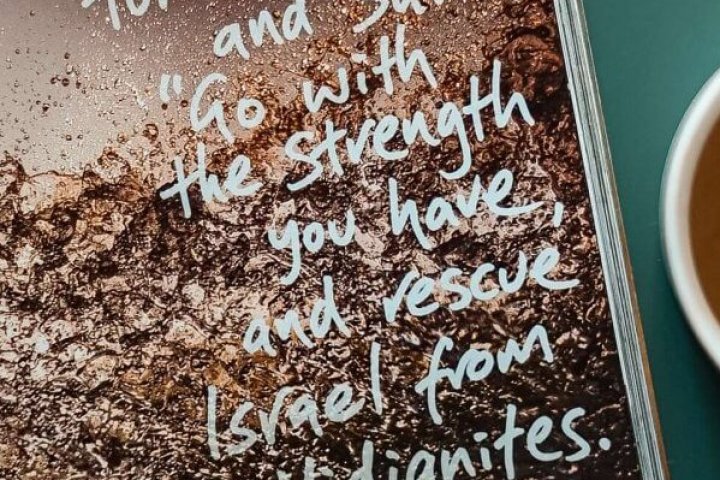 and
"Go with
the strength
you have,
and rescue
Israel from